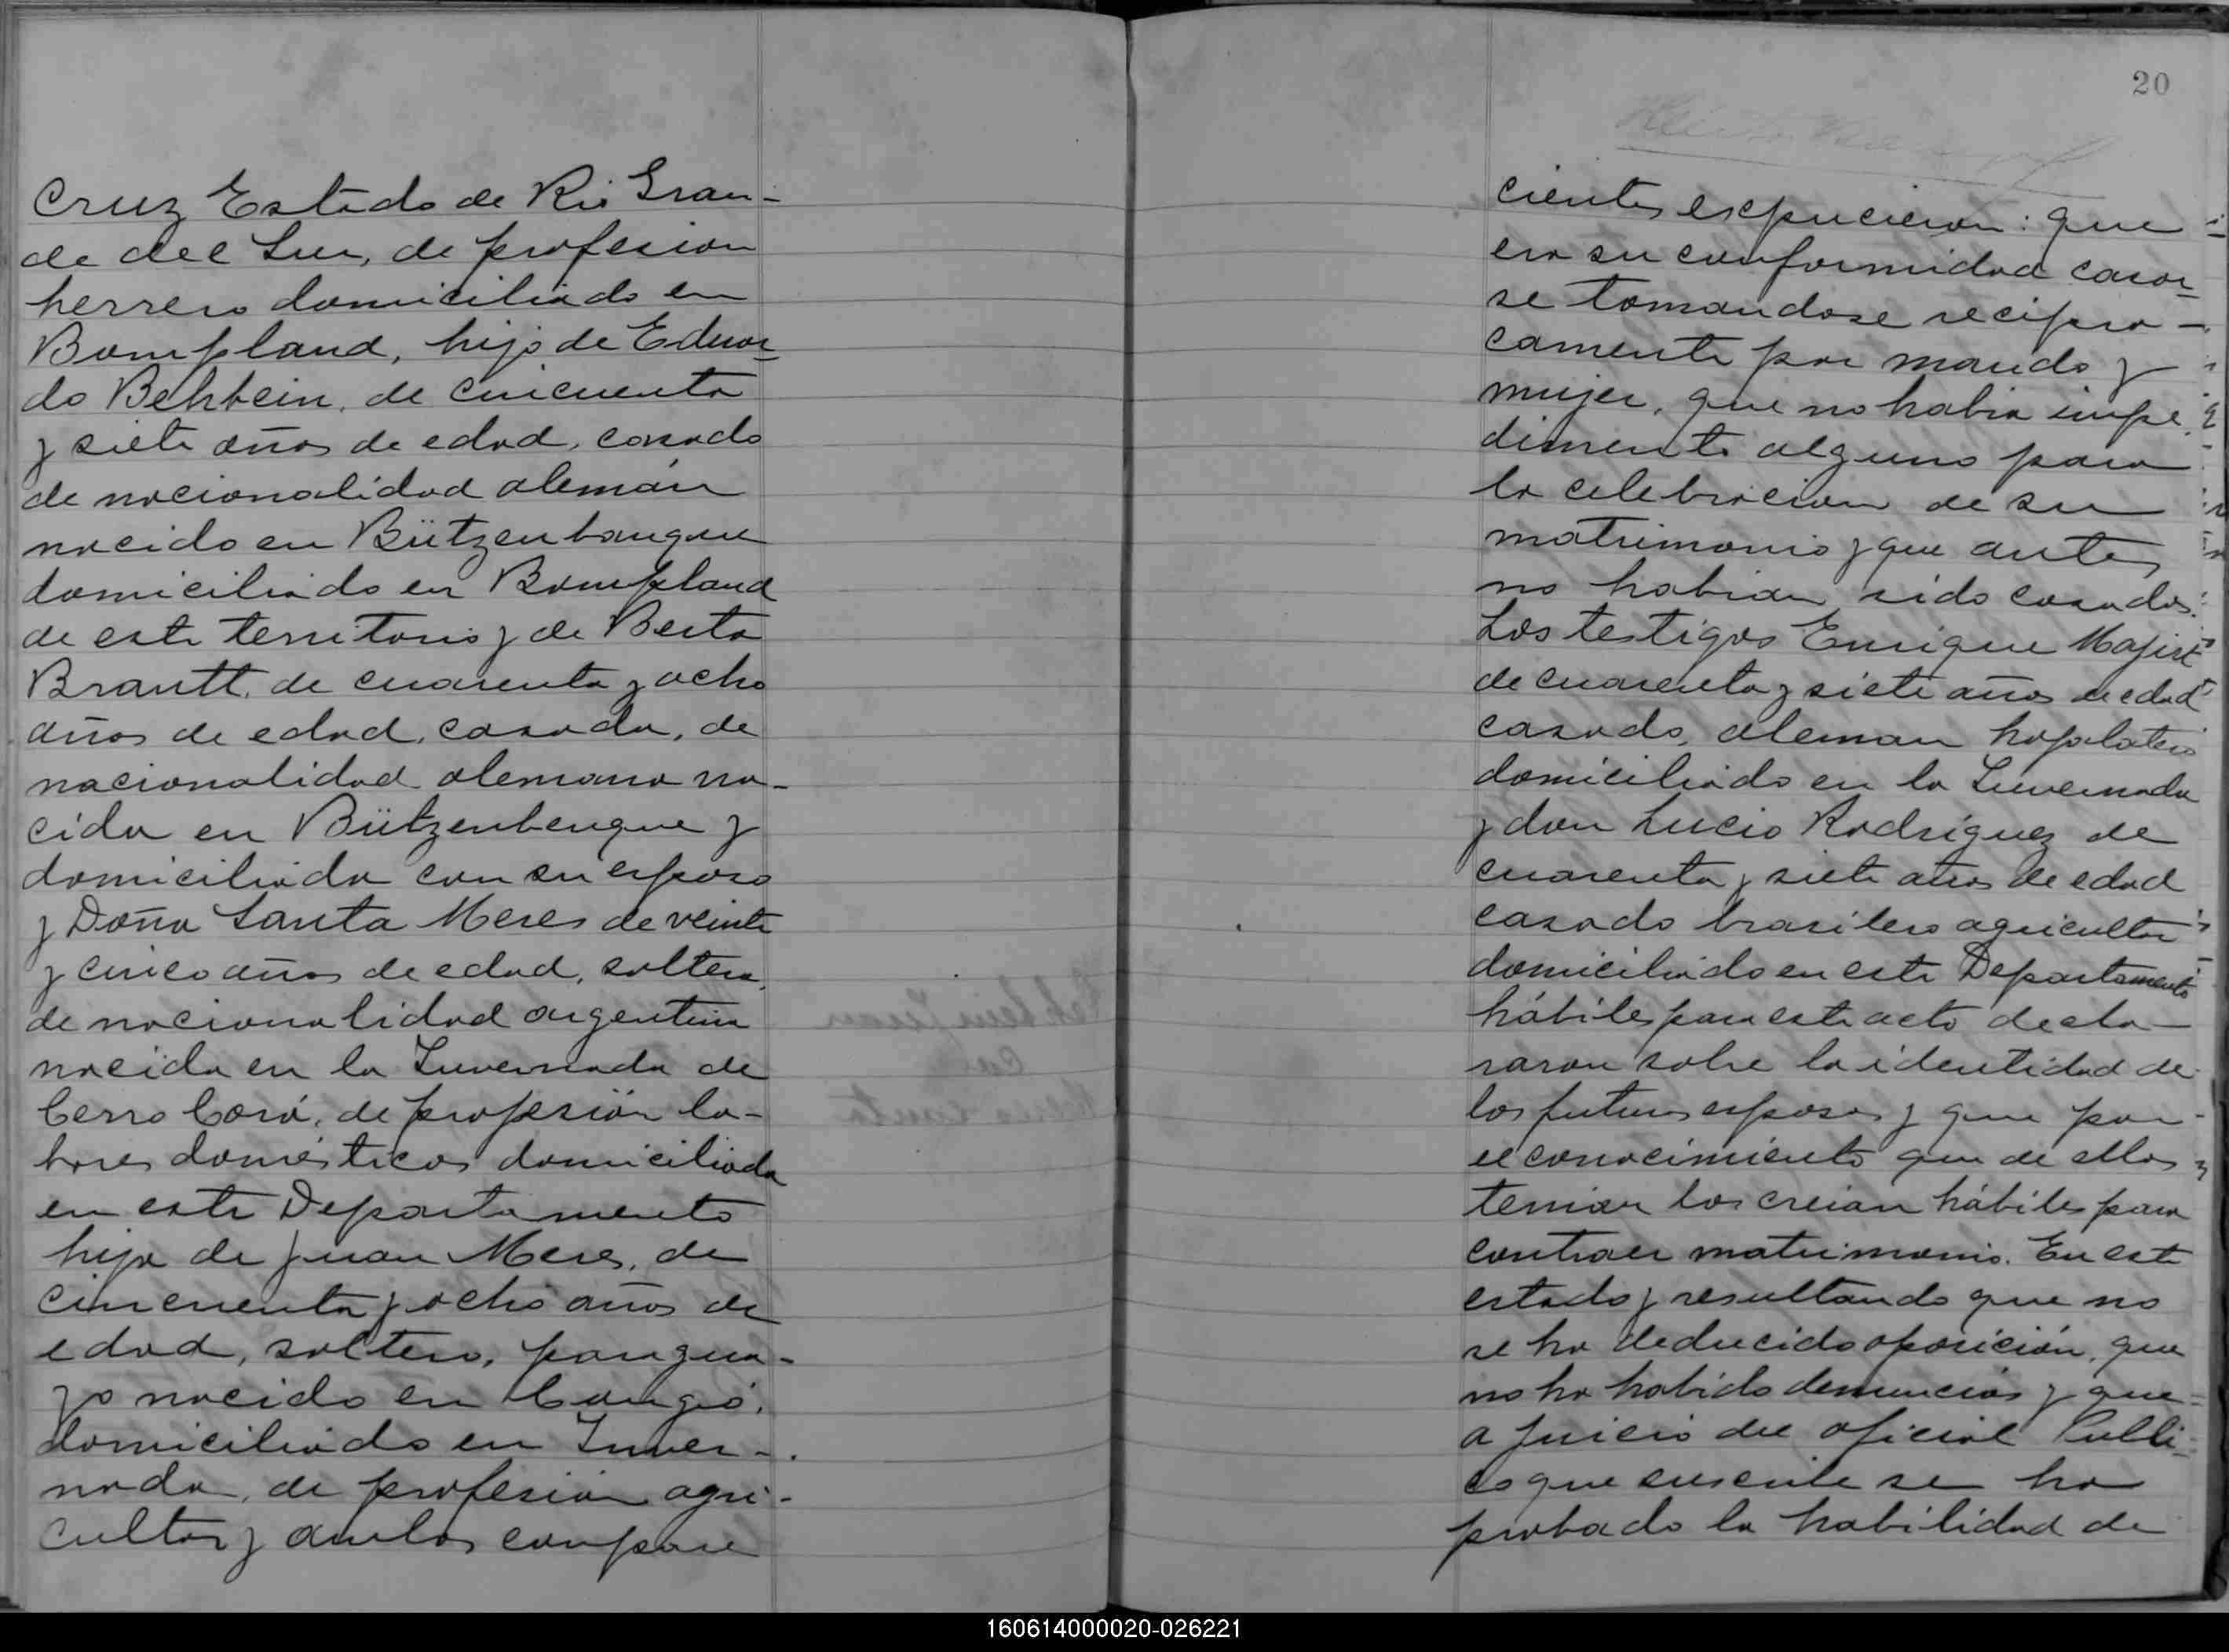 Cruz Estado de Rio Gran-
de del Sur, de profesion
herrero domiciliado en
Bompland, hijo de Eduar
do Behbein, de cincuenta
y siete años de edad, casado
de nacionalidad alemán
nacido en Bützenbangue
domiciliado en Bompland
de este territorio y de Berta
Brantt, de cuarenta y ocho
años de edad, casada, de
nacionalidad alemana na-
cida en Bützenbengue y
domiciliada con su esposo
y Doña Santa Meres de veinte
y cinco años de edad, soltera,
de nacionalidad argentina
nacida en la Invernada de
Cerro Corá, de profesión la-
bores domésticos domiciliada
en este Departamento
hija de Juan Meres, de
cincuenta y ocho años de
edad, soltero, paragua-
yo nacido en Cangó,
domiciliado en Inver-
nada, de profesión agri-
cultor y ambos compare
20
cientes expusieron: que
era su conformidad casar
se tomandose recipro-
camente por marido y
mujer, que no habia impe
dimento alguno para
la celebracion de su
matrimonio y que antes
no habian sido casados.
Los testigos Enrique
de cuarenta y siete años de edad
casado, aleman hojalatero
domiciliado en la Invernada
y don Lucio Rodríguez de
cuarenta y siete años de edad
casado brasilero agricultor
domiciliado en este Departamento
hábiles para este acto decla-
raron sobre la identidad de
los futuros esposos y que por
el conocimiento que de ellos
tenian los creian hábiles para
contraer matrimonio. En este
estado y resultando que no
se ha deducido oposición, que
no ha habido denuncias y que
a juicio del oficial Publi-
co que suscribe se ha
probado la habilidad de
160614000020-026221